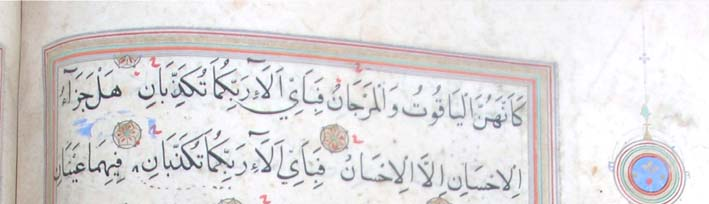 كَأَنَّهُنَّ الْيَاقُوتُ وَالْمَرْجَانُ فَبِأَيِّ اٰلَاۤءِ رَبِّكُمَا تُكَذِّبَانِ هَلْ جَزَاۤءُ
الْاِحْسَانِ اِلَّا الْاِحْسَانُ فَبِأَيِّ اٰلَاۤءِ رَبِّكُمَا تُكَذِّبَانِ فِيهِمَا عَيْنَانِ